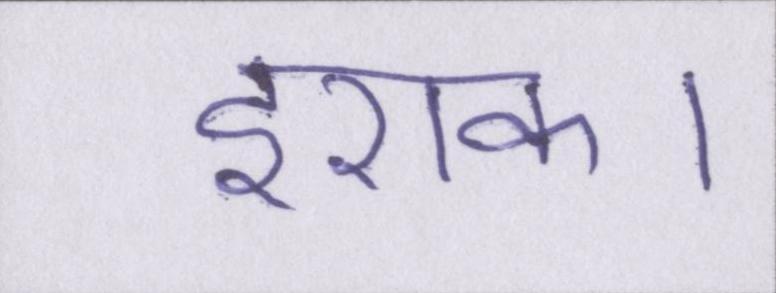 इराक।